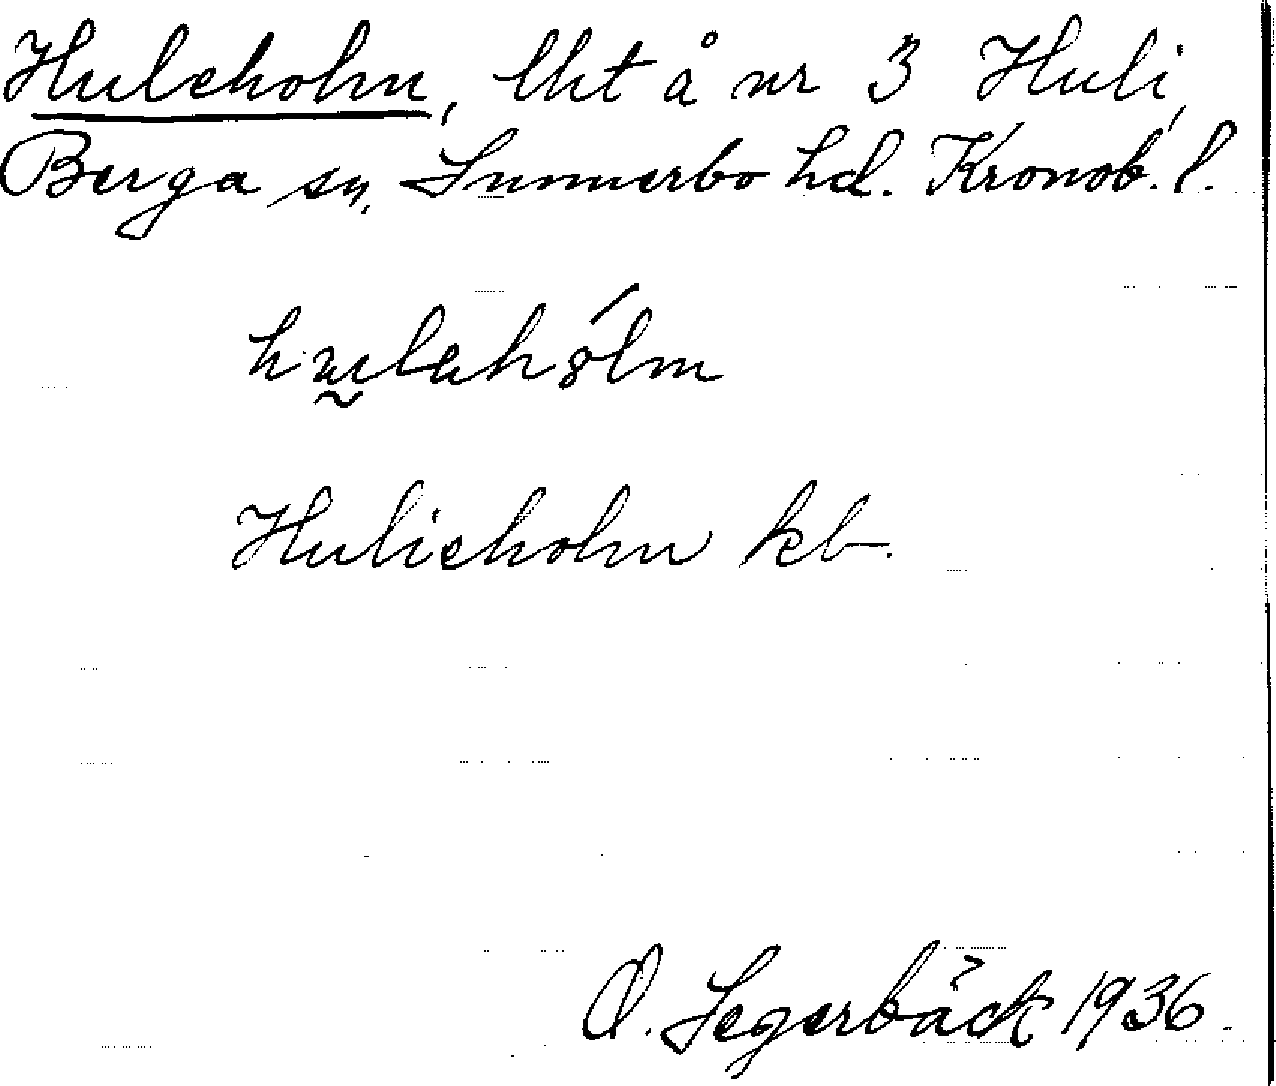 Huleholm, lht å nr 3 Huli,
Berga sn, Sunnerbo hd. Kronob. l.
Hulieholm kb.
O. Segerbäck 1936.